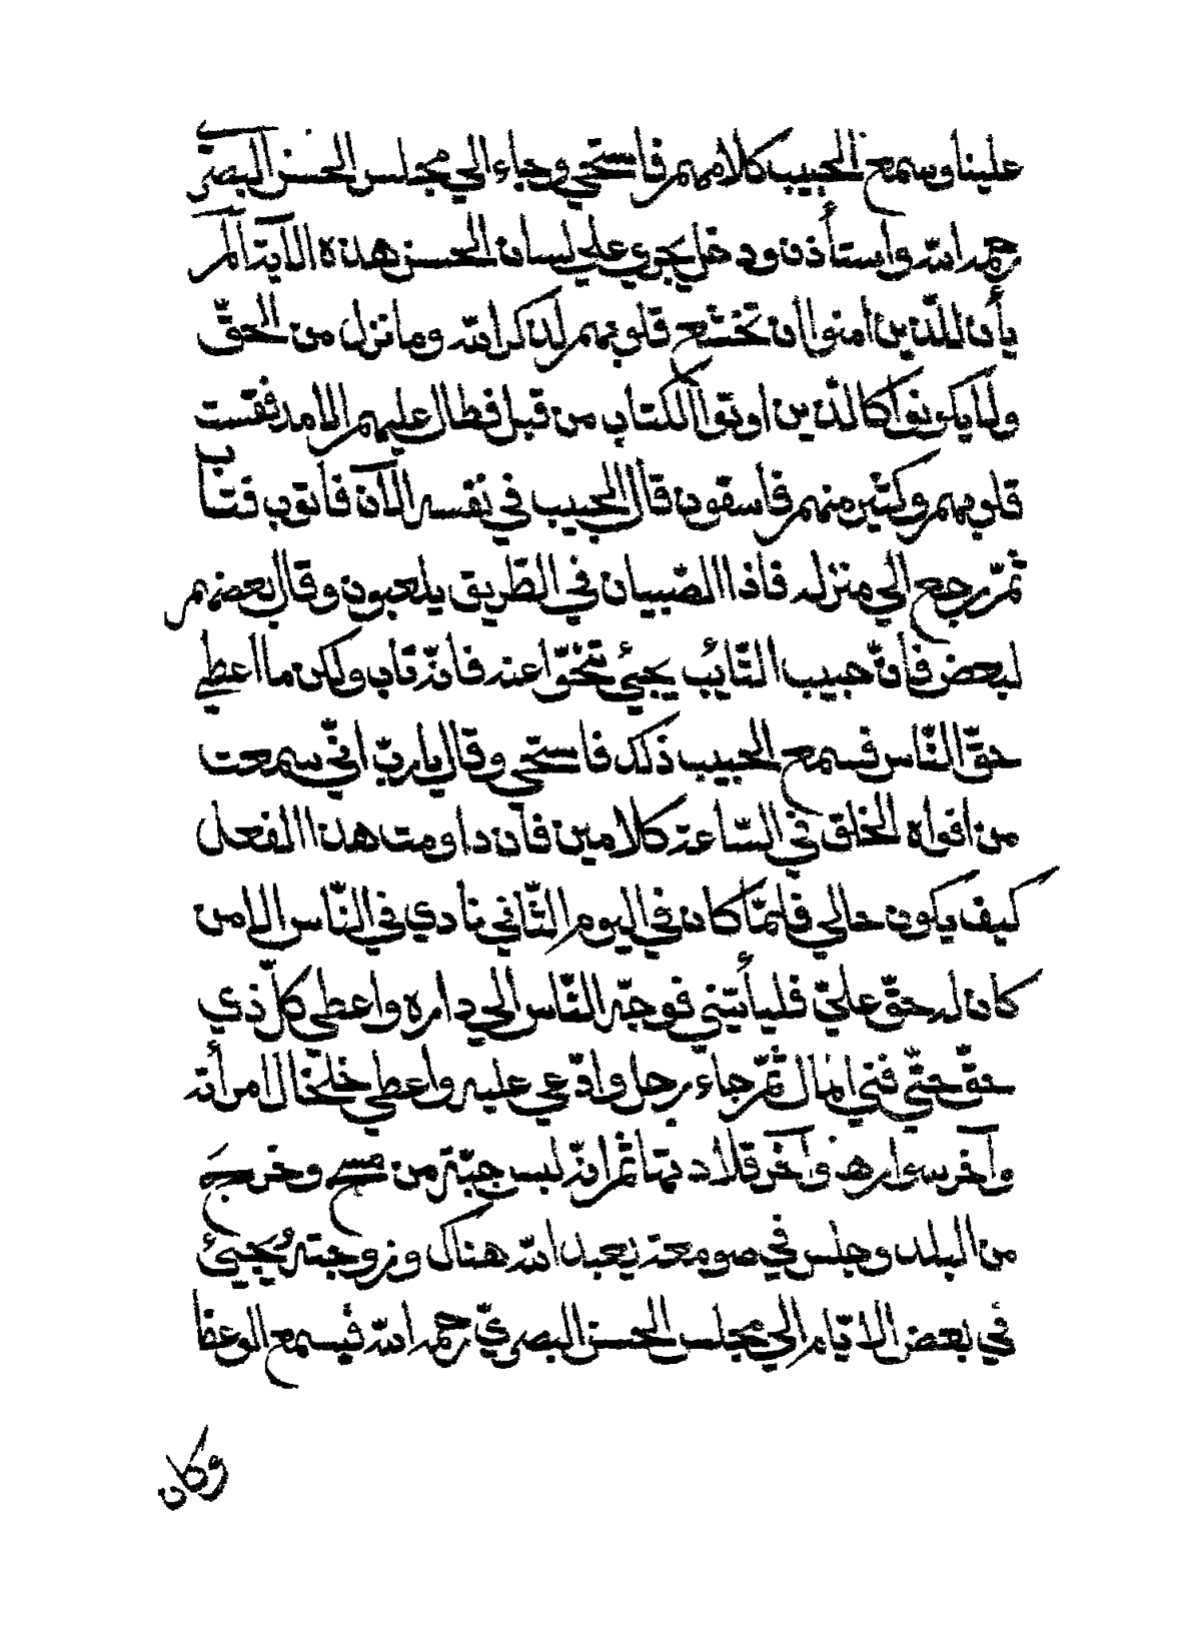 علينا وسمع الحبيب كلامهم فاستحي وجاء الي مجلس الحسن البصريّ
رحمه الله واستأذن ودخل يجري علي لسان الحسن هذه الآية ألم
يأن للّذين امنوا ان تخشع قلوبهم لذكر الله وما نزل من الحقّ
ولا يكونوا كالذّين اوتوا الكتاب من قبل فطال عليهم الامد فقست
قلوبهم وكثير منهم فاسقون قال الحبيب في نفسه الآن فأتوب فتاب
ثمّ رجع الي منزله فاذا الصّبيان في الطّريق يلعبون وقال بعضهم
لبعض فأنّ حبيب التّائب يجيئ تنحّوا عنه فانّه تاب ولكن ما اعطي
حقّ النّاس فسمع الحبيب ذلك فاستحي وقال يا ربّ انّي سمعت
من افواه الخلق في السّاعة كلامين فان داومت هذا الفعل
كيف يكون حالي فلمّا كان في اليوم الثّاني نادي في النّاس الا من
كان له حقّ عليّ فليأتيني فوجّه النّاس الي داره واعطي كلّ ذي
حقّ حتّي فني المال ثمّ جاء رجل وادّعي عليه واعطي خلخال امرأته
وآخر سوارها وآخر قلادتها ثم انّه لبس جبّة من مسح وخرج
من البلد وجلس في صومعة يعبد الله هناك وزوجته يجيئ
في بعض الايّام الي مجلس الحسن البصريّ رحمه الله فيسمع الوعظ
وكان